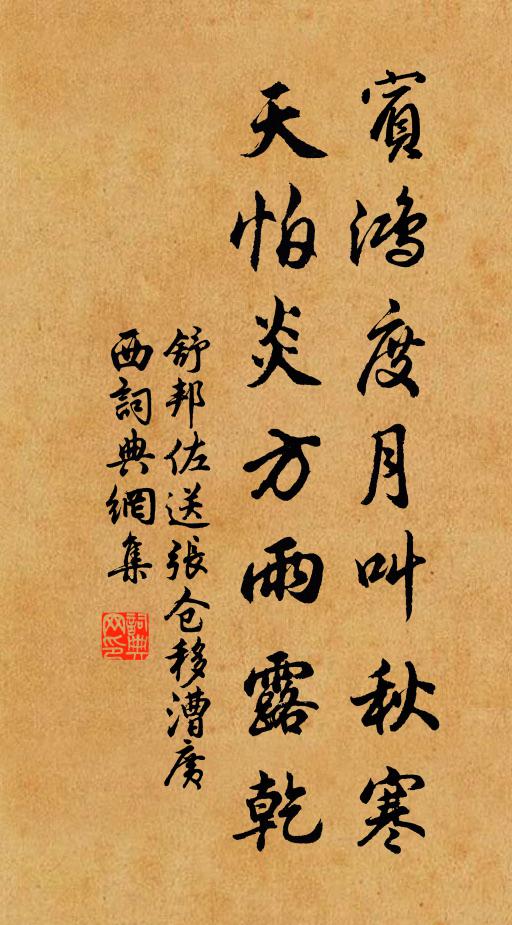 賓鴻度月叫秋寒
天怕炎方雨露乾
舒邦佐送張仓移漕廣
西詞典網集
詞典
网印